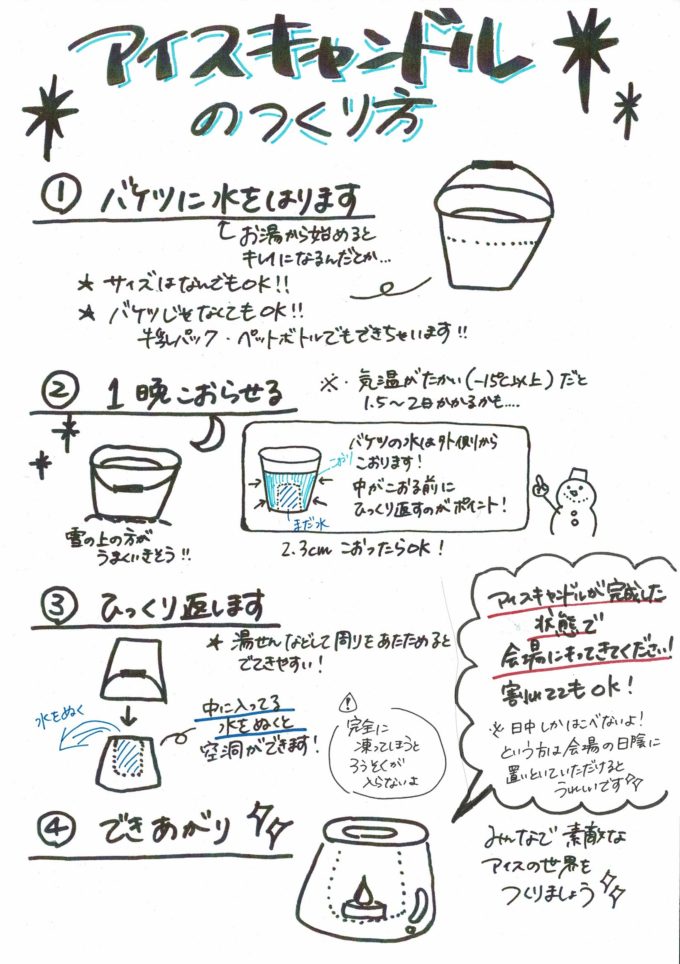 アイスキャンドル
のつくり方
① バケツに水をはります
お湯から始めると
キレイになるんだとか...
★ サイズはなんでもOK!!
★ バケツじゃなくてもOK!!
牛乳パック・ペットボトルでもできちゃいます!!
② 1晩こおらせる
※・気温がたかい(-15℃以上)だと
1.5〜2日かかるかも....
雪の上の方が
うまくいきそう!!
こおり
まだ水
バケツの水は外側から
こおります!
中がこおる前に
ひっくり返すのがポイント!
2.3cm こおったらOK!
③ ひっくり返します
★ 湯せんなどして周りをあたためると
でてきやすい!
水をぬく
中に入ってる
水をぬくと
空洞ができます!
!
完全に
凍ってしまうと
ろうそくが
入らないよ
アイスキャンドルが完成した
状態で
会場にもってきてください!
割れててもOK!
※ 日中しかはこべないよ!
という方は会場の日陰に
置いといていただけると
うれしいです
④ できあがり
みんなで素敵な
アイスの世界を
つくりましょう